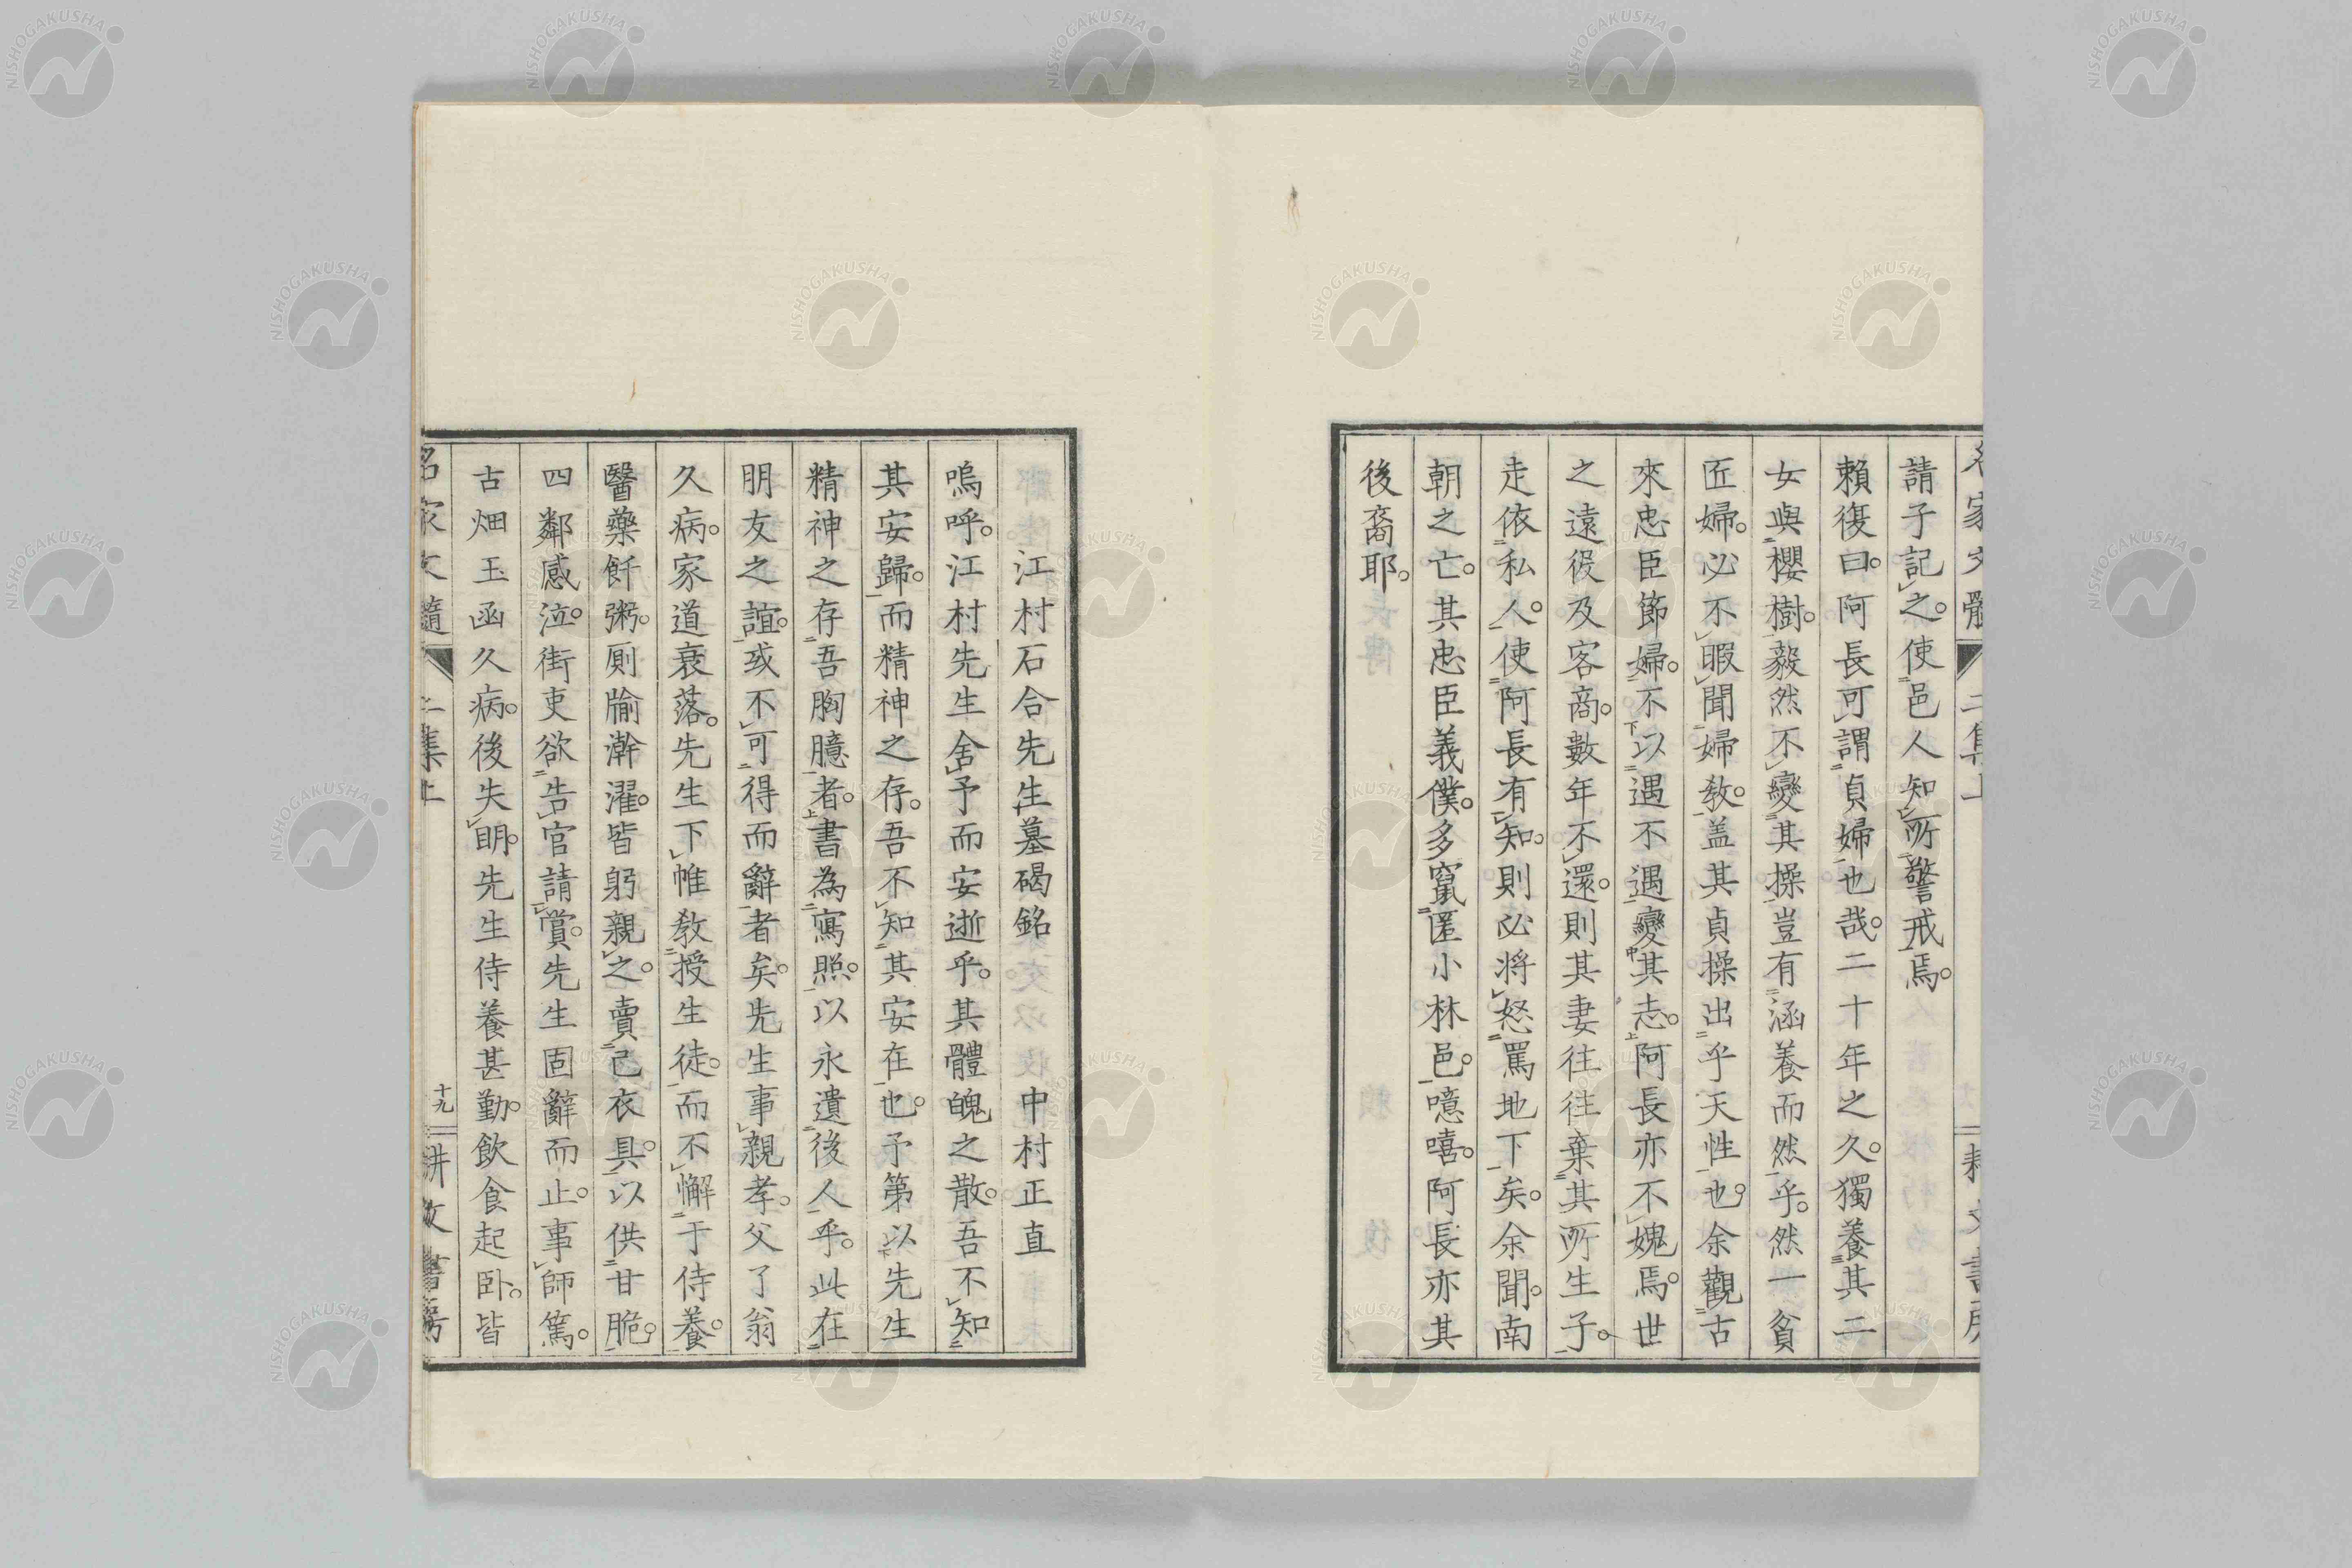 請予記之。使邑人知所警戒焉。
賴復曰。阿長可謂貞婦也哉。二十年之久。獨養其二
女與櫻樹。毅然不變其操豈有涵養而然乎。然一貧
匠婦。必不暇聞婦教。蓋其貞操出乎天性也。余觀古
來忠臣節婦。不以遇不遇變其志。阿長亦不媿焉。世
之遠役及客商。數年不還。則其妻往往棄其所生子。
走依私人。使阿長有知。則必將怒罵地下矣。余聞。南
朝之亡。其忠臣義僕。多竄匿小林邑。噫嘻。阿長亦其
後裔耶。
江村石合先生墓碣銘 中村正直
嗚呼。江村先生舍予而安逝乎。其體魄之散。吾不知
其安歸。而精神之存。吾不知其安在也。予第以先生
精神之存吾胸臆者。書為寫照。以永遺後人乎。此在
朋友之誼。或不可得而辭者矣。先生事親孝。父了翁
久病。家道衰落。先生下帷教授生徒。而不懈于侍養。
醫藥飦粥。厠牏澣濯。皆躬親之。賣己衣具。以供甘脆。
四鄰感泣。街吏欲告官請賞。先生固辭而止。事師篤。
古畑玉函久病。後失明。先生侍養甚勤。飲食起卧。皆
名家文隨 二集上 十九 耕文書房
NISHOGAKUSHA